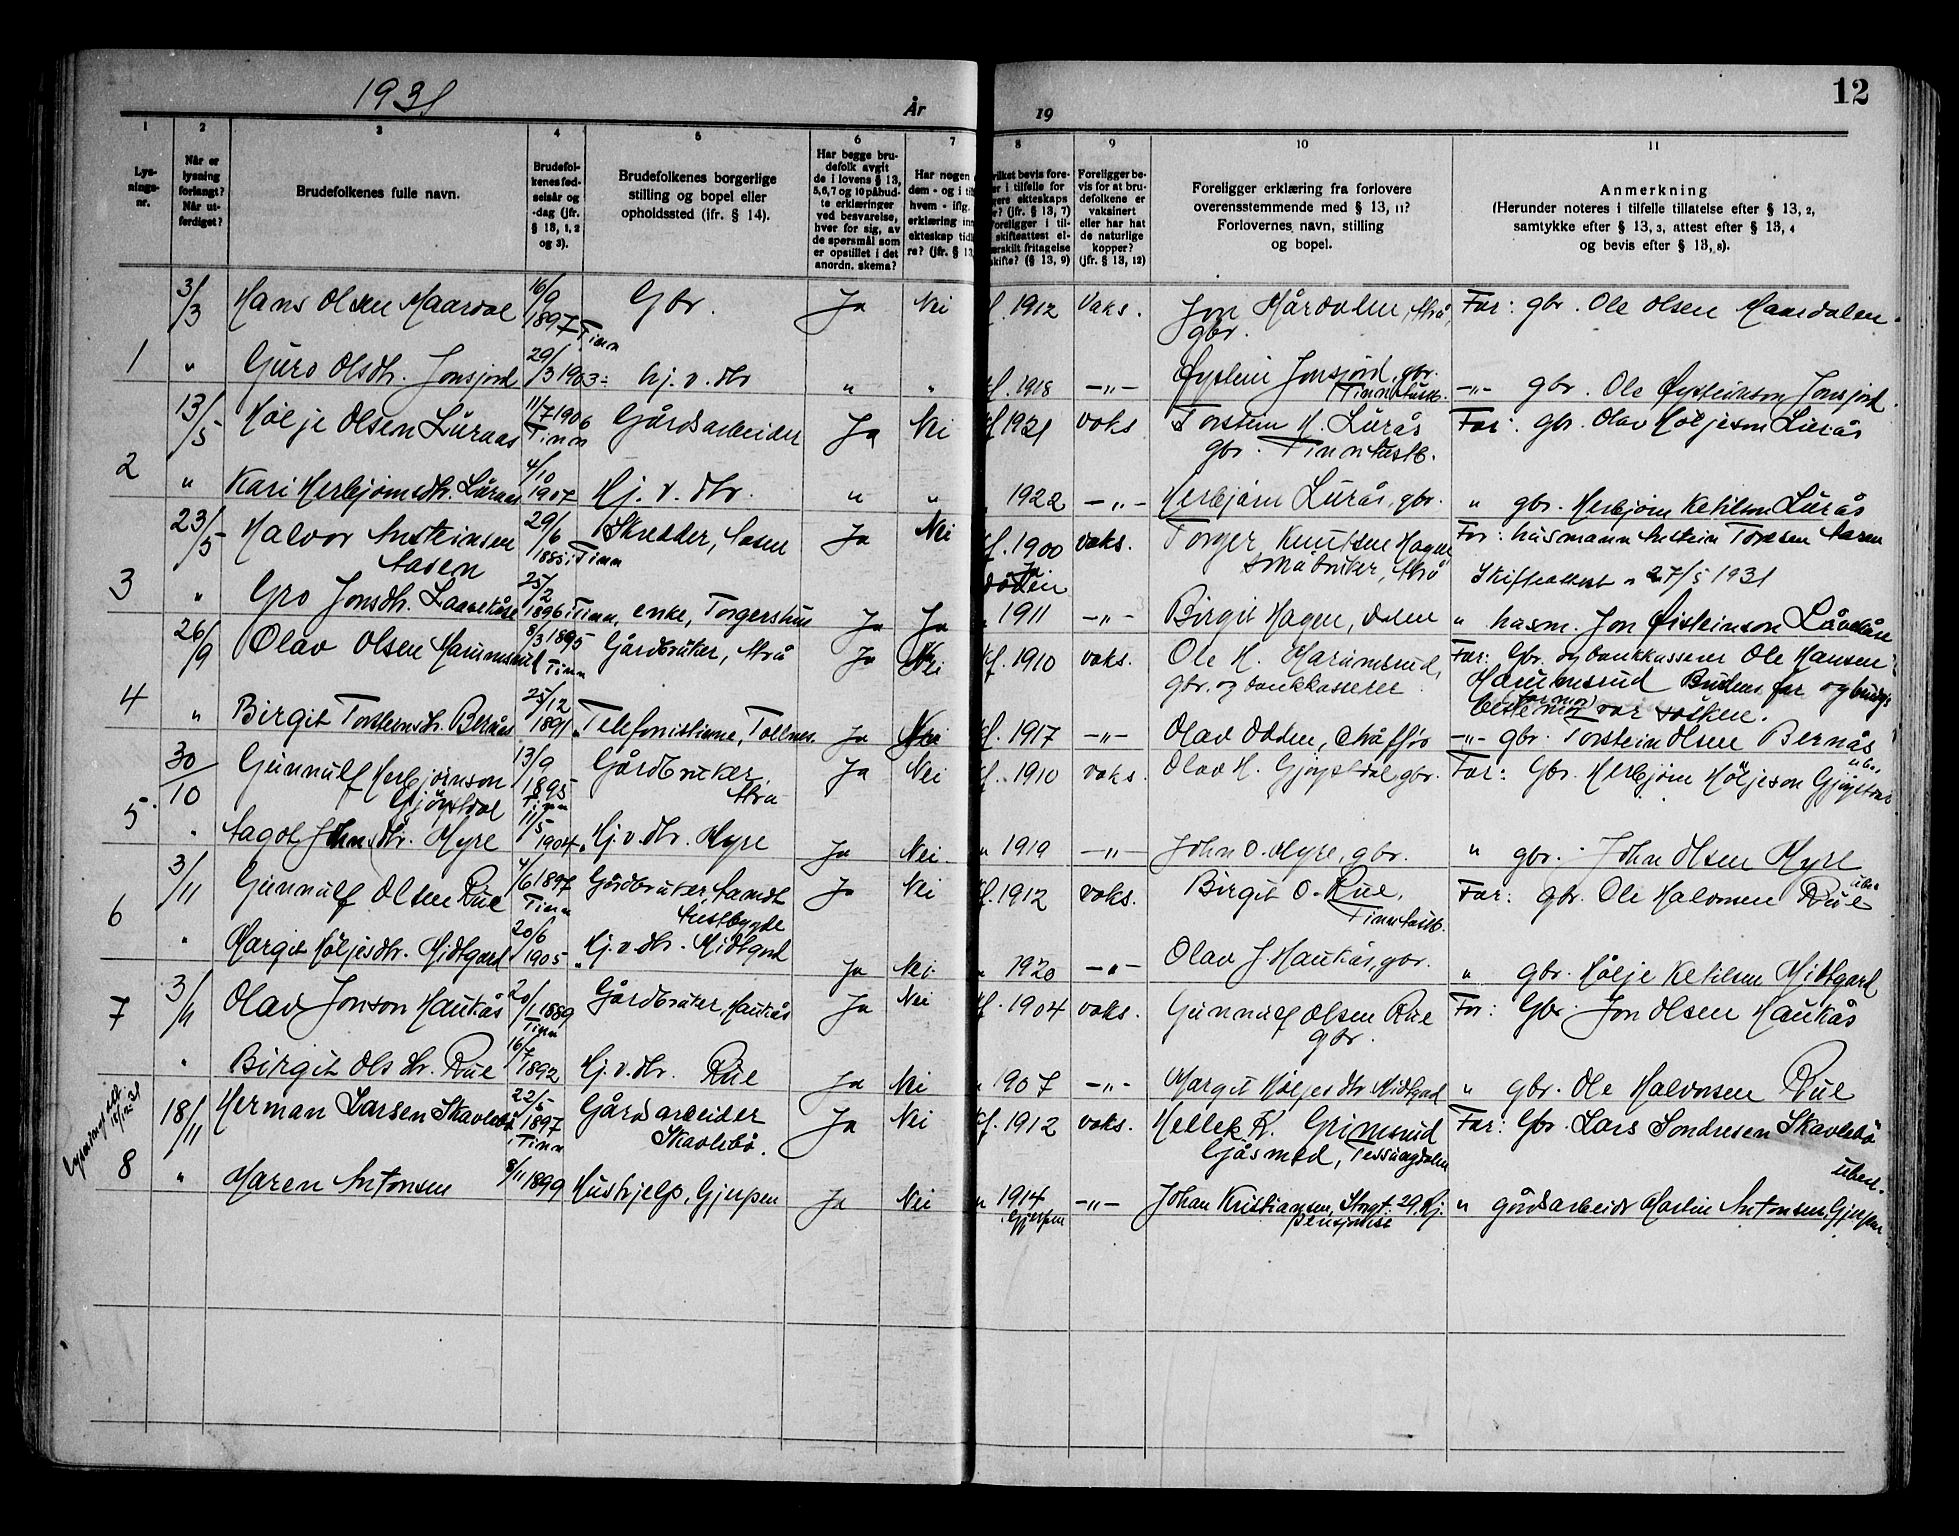 1931
År
19
12
1
2
3
4
5
6
7
8
9
10
11
Lys-
nings-
nr.
Når er
lysning
forlangt?
Når ut-
ferdiget?
Brudefolkenes fulle navn.
Brudefol-
kenes fød-
selsår og
-dag (jfr.
§ 13, 1, 2
og 3).
Brudefolkenes borgerlige
stilling og bopel eller
opholdssted (ifr. § 14).
Har begge bru-
defolk avgit
de i lovens § 13,
5,6,7 og 10 påbud-
te erklæringer
ved besvarelse,
hver for sig, av
de spørsmål som
er opstillet i det
anordn. skema?
Har nogen
dem - og i ti
hvem - iflg.
erklæring in
ekteskap tid
re? (jfr. § 13,
vilket bevis fore-
er i tilfelle for
gere ekteskaps
r? (jfr. § 13, 7)
Foreligger i til-
skifteattest el-
ærskilt fritagelse
skifte? (§ 13, 9)
Foreligger be-
vis for at bru-
defolkene er
vaksinert
eller har hat
de naturlige
kopper?
(jfr. § 13, 12)
Foreligger erklæring fra forlovere
overensstemmende med § 13, 11?
Forlovernes navn, stilling
og bopel.
Anmerkning
(Herunder noteres i tilfelle tillatelse efter § 13, 2,
samtykke efter § 13, 3, attest efter § 13, 4
og bevis efter § 13, 8).
3/3 Hans Olsen Maardal 16/9 1897 Tinn Gbr. Ja Nei 1912 Vaks. Jon Mårdalen, Atrå, gbr. Far: gbr. Ole Olsen Maardalen
1 " Guro Olsdtr. Jonsjord 29/3 1903 = hj. v. dtr " " 1918 -"- Øystein Jonsjord, gbr. Tinn Austb. -"- gbr. Ole Øysteinson Jonsjord.
13/5 Hølje Olsen Luraas 11/7 1906 Tinn Gårdsarbeider Ja Nei 1921 vaks Torstein H. Lurås gbr. Tinn Austb. Far: gbr. Olav Høljeson Lurås
2 " Kari Herbjørnsdtr. Luraas 4/10 1907 Hj. v. dtr. " " 1922 -"- Herbjørn Lurås, gbr. " gbr. Herbjørn Ketilson Lurås
23/5 Halvor Austeinsen Aasen 29/6 1885, Tinn Skredder, Aasen Ja Nei 1900 vaks. Torger Knutsen Hagen småbruker, Atrå Far: husmann Austein Toresen Aasen
Skifteattest 27/5 1931
3 " Gro Jonsdtr. Laavekåse 25/2 1896 Tinn, enke, Torgershus Ja Ja 1911 -"- Birgit Hagen, Dalen " husm. Jon Øisteinson Låvekåse
26/9 Olav Olsen Marumsrud 8/3 1895 Tinn Gårdbruker, Atrå Ja Nei 1910 vaks. Ole H. Marumsrud, gbr. og bankkasserer Far: Gbr. og bankkasserer Ole Hansen Marumsrud Brudens far og brudg. bestemor (farmor) var søsken.
4 " Birgit Torsteinsdtr. Bernås 25/12 1891 " Telefonistinne, Tollnes. Ja Nei 1917 -"- Olav Odden, Chaffør -"- gbr. Torstein Olsen Bernås
30/10 Gunnulf Herbjørnson Gjøystdal 13/9 1895 Tinn Gårdbruker, Atrå Ja Nei 1910 vaks. Olav H. Gjøystdal gbr. Far: Gbr. Herbjørn Høljeson Gjøystdal
5. " Aagot Johnsdtr. Myre 11/5 1904 " Hj. v. dtr. Myre Ja Nei 1919 -"- John O. Myre, gbr. " gbr. John Olsen Myre
3/11 Gunnulf Olsen Rue 4/6 1897 Tinn Gårdbruker, Austbygde Ja Nei 1912 vaks. Birgit O. Rue, Tinn Austb. Far: gbr. Ole Halvorsen Rue
6 " Margit Høljesdtr. Midtgard 20/6 1905 " Hj. v. dtr. Midtgard Ja Nei 1920 -"- Olav J Haukås, gbr. " gbr. Hølje Ketilsen Midtgard
7 3/11 Olav Jonson Haukås 20/1 1889 Tinn Gårdbruker, Haukås Ja Nei 1904 vaks. Gunnulf Olsen Rue gbr. Far: Gbr Jon Olsen Haukås
" Birgit Olsdtr. Rue 16/7 1892 Hj. v. dtr. Rue Ja Nei 1907 -"- Margit Høljesdtr Midtgard " gbr. Ole Halvorsen Rue
18/11 Herman Larsen Skavlebø 22/5 1897, Tinn Gårdsarbeider Skavlebø. Ja Nei 1912 vaks. Hellek K. Grimsrud Gåsmed, Tessungdalen Far: Gbr. Lars Sondresen Skavlebø
8 " Maren Antonsen 8/11 1899 Hushjelp, Gjerpen Ja Nei " 1914 Gjerpen -"- Johan Kristiansen, Storgt. 29, Rj. " gårdsarbeider Martin Antonsen, Gjerpen